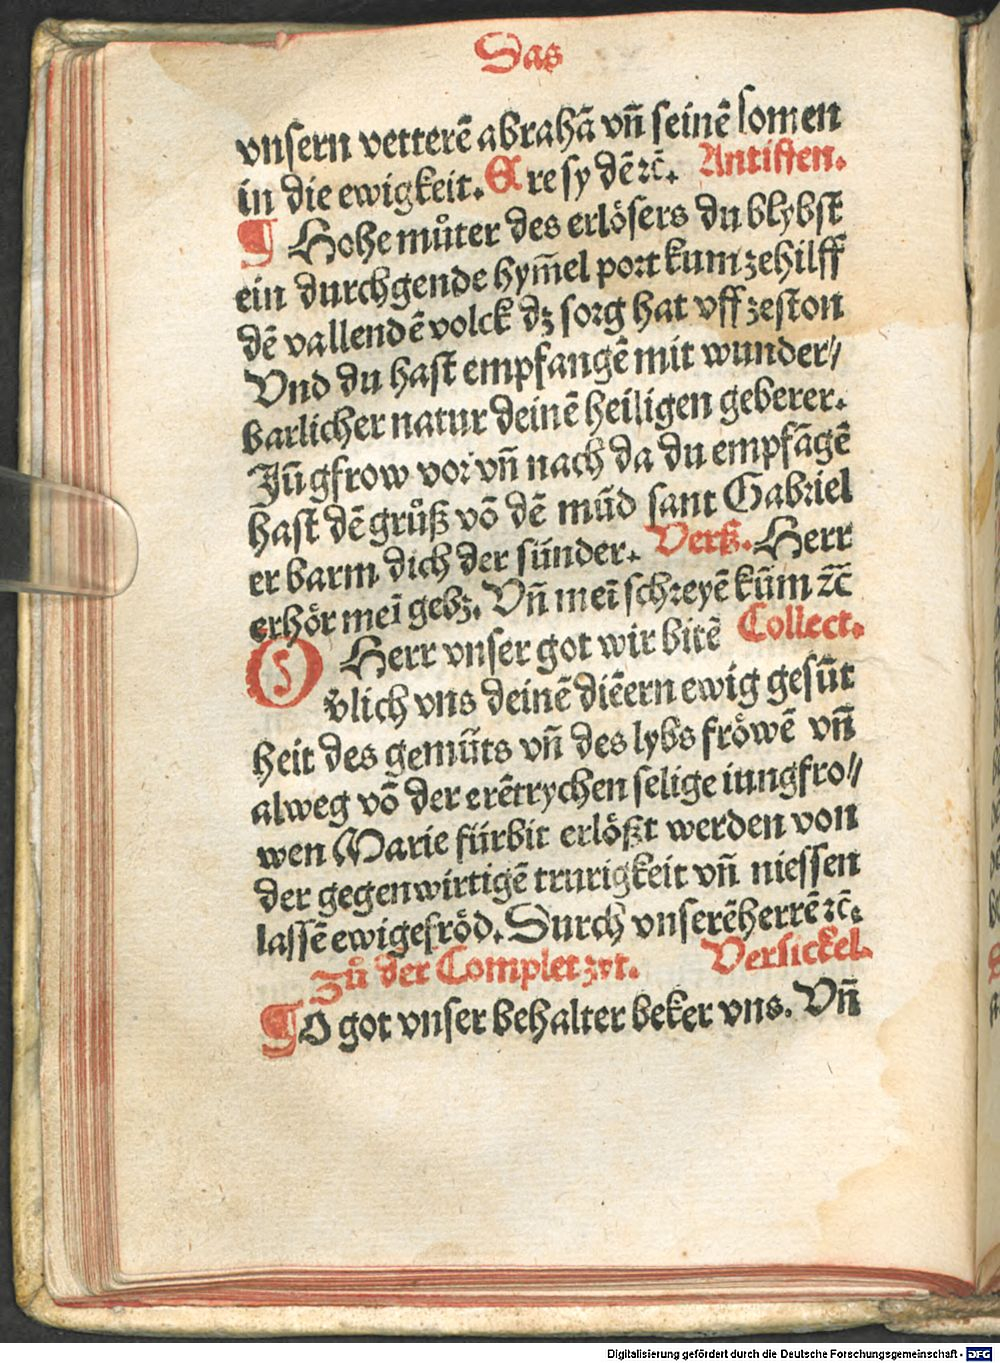 Das
vnsern vetterē abrahā vn̄ seinē somen
in die ewigkeit. Ere sy dē ꝛc̄. Antiffen.
¶ Hohe můter des erlösers du blybst
ein durchgende hym̄el port kum zehilff
dē vallendē volck dꝫ sorg hat vff zeston
Vnd du hast empfangē mit wunder⸗
barlicher natur deinē heiligen geberer.
Jūgfrow vor vn̄ nach da du empfāgē
hast dē grůß vō dē mūd sant Gabriel
er barm dich der sünder. Verß. Herr
erhör mei gebꝫ. Vn̄ mei schreyē kūm ꝛc̄
O Herr vnser got wir bitē Collect.
vlich vns deinē diēern ewig gesūt
heit des gemüts vn̄ des lybs fröwē vn̄
alweg vō der erētrychen selige iungfro⸗
wen Marie fürbit erlößt werden von
der gegenwirtigē trurigkeit vn̄ niessen
lassē ewige fröd. Durch vnserē herrē ꝛc̄.
Zů der Complet zyt. Versickel.
¶ O got vnser behalter beker vns. Vn̄
Digitalisierung gefördert durch die Deutsche Forschungsgemeinschaft - DFG